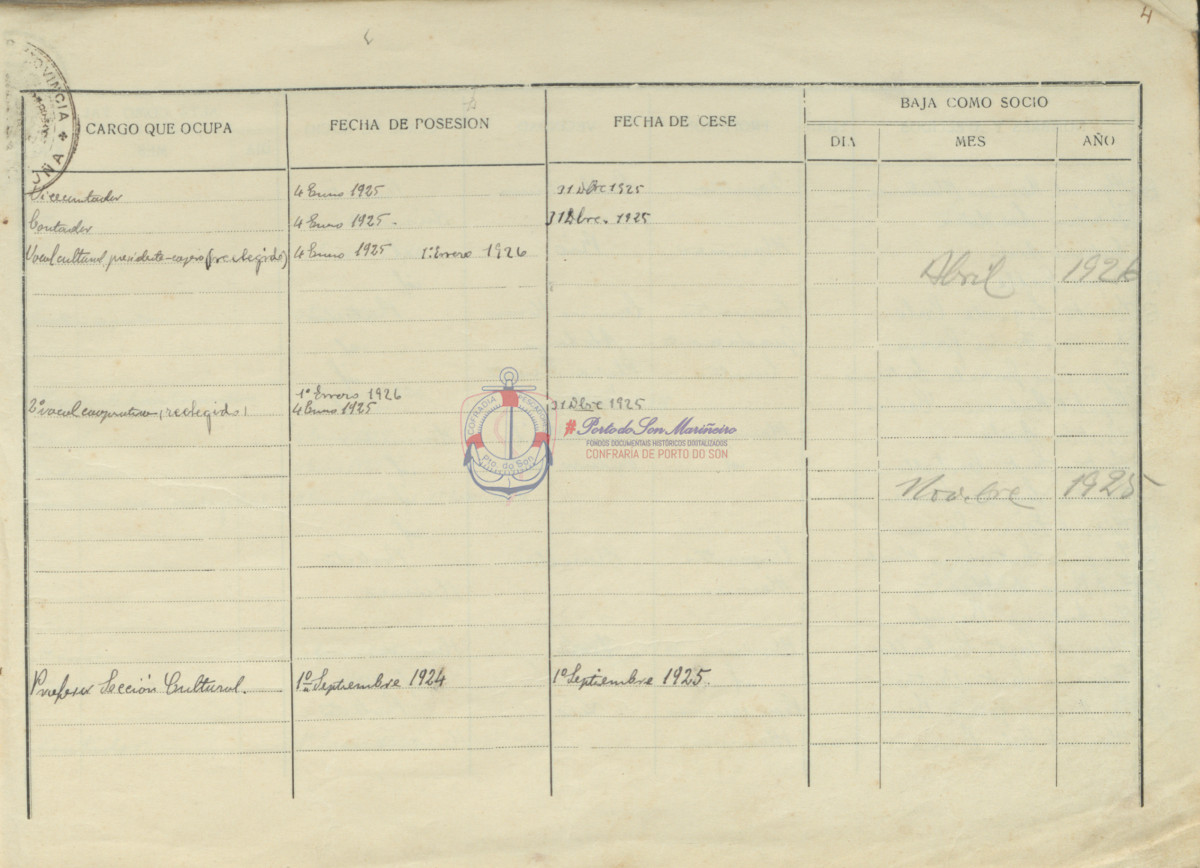 4
PROVINCIA
UÑA
BAJA COMO SOCIO
CARGO QUE OCUPA FECHA DE POSESION FECHA DE CESE
DIA MES AÑO
Vicecontador 4 Enero 1925 31 Dbre 1925
Contador 4 Enero 1925 - 31 Dbre. 1925
Vocal cultural presidente (reelegido) 4 Enero 1925 1º Enero 1926
Abril 1926
1º Enero 1926
2º vocal cooperativa (reelegido) 4 Enero 1925 31 Dbre 1925
COFRADIA PESCADORES
Pto. do Son
#Porto do Son Mariñeiro
FONDOS DOCUMENTAIS HISTÓRICOS DIXITALIZADOS
CONFRARÍA DE PORTO DO SON
Novbre 1925
Profesor Sección Cultural. 1º Septiembre 1924 1º Septiembre 1925.